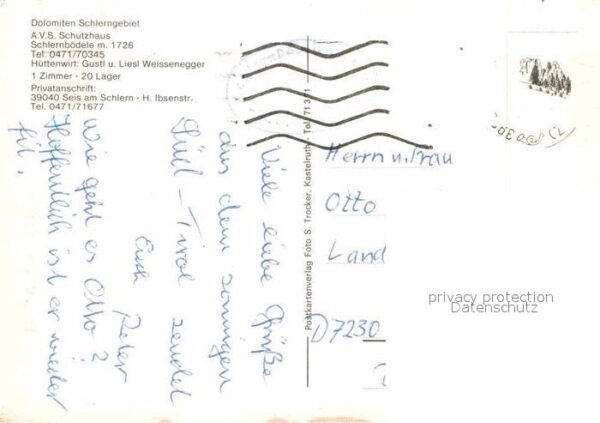 Dolomiten Schlerngebiet
A.V.S. Schutzhaus
Schlernbödele m. 1726
Tel. 0471/70345
Hüttenwirt: Gustl u. Liesl Weissenegger
1 Zimmer - 20 Lager
Privatanschrift:
39040 Seis am Schlern - H. Ibsenstr.
Tel. 0471/71677
Viele liebe Grüße
aus dem sonnigen
Süd-Tirol sendet
Euch Peter
Wie geht es Otto?
Hoffentlich ist er wieder
fit.
Postkartenverlag Foto S. Trocker, Kastelruth, Tel. 71371
Herrn u. Frau
Otto
Land
D7230
privacy protection
Datenschutz